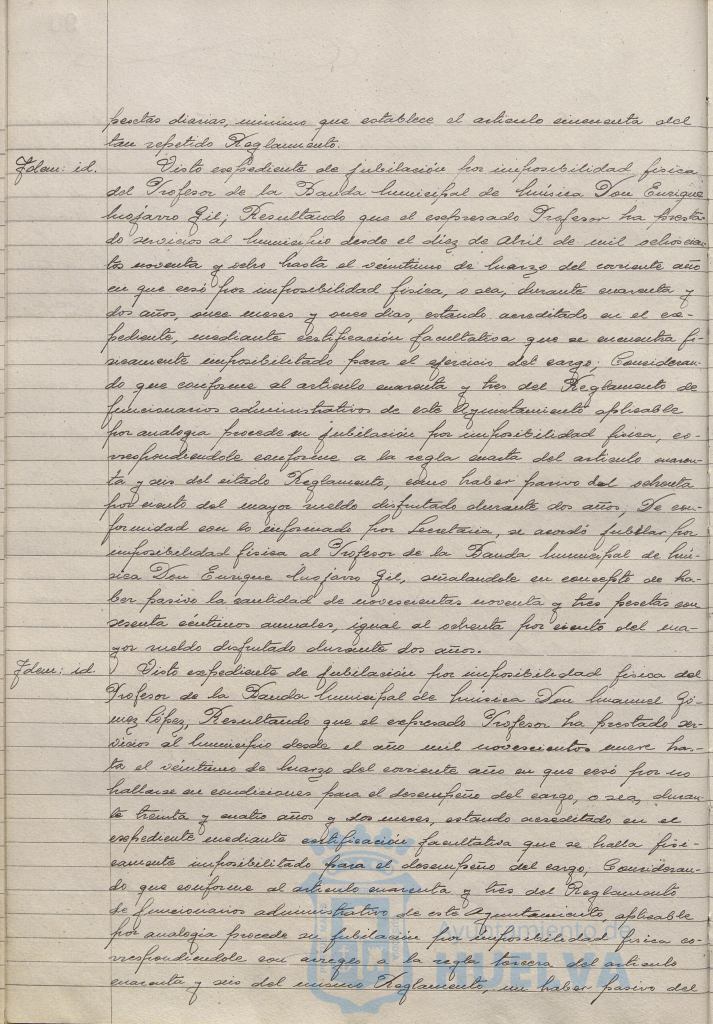 pesetas diarias, mínimo que establece el articulo cincuenta del
tan repetido Reglamento.
Idem: id. Visto expediente de jubilación por imposibilidad fisica
del Profesor de la Banda Municipal de Música Don Enrique
Mojarro Gil; Resultando que el expresado Profesor ha presta-
do servicios al Municipio desde el diez de Abril de mil ochocien-
tos noventa y ocho hasta el veintiuno de Marzo del corriente año
en que cesó por imposibilidad fisica, o sea, durante cuarenta y
dos años, once meses y once dias, estando acreditado en el ex-
pediente, mediante certificación facultativa que se encuentra fi-
sicamente imposibilitado para el ejercicio del cargo; Consideran-
do que conforme al articulo cuarenta y tres del Reglamento de
funcionarios administrativos de este Ayuntamiento aplicable
por analogia procede su jubilación por imposibilidad fisica, co-
rrespondiendole conforme a la regla cuarta del articulo cuaren-
ta y seis del citado Reglamento, como haber pasivo del ochenta
por ciento del mayor sueldo disfrutado durante dos años, De con-
formidad con lo informado por Secretaria, se acordó jubilar por
imposibilidad fisica al Profesor de la Banda Municipal de Mú-
sica Don Enrique Mojarro Gil, señalandole en concepto de ha-
ber pasivo la cantidad de novescientas noventa y tres pesetas con
sesenta centimos anuales, igual al ochenta por ciento del ma-
yor sueldo disfrutado durante dos años.
Idem: id. Visto expediente de jubilación por imposibilidad fisica del
Profesor de la Banda Municipal de Música Don Manuel Gó-
mez López, Resultando que el expresado Profesor ha prestado ser-
vicios al Municipio desde el año mil novescientos nueve has-
ta el veintiuno de Marzo del corriente año en que cesó por no
hallarse en condiciones para el desempeño del cargo, o sea, duran-
te treinta y cuatro años y dos meses, estando acreditado en el
expediente mediante certificación facultativa que se halla fisi-
camente imposibilitado para el desempeño del cargo, Consideran-
do que conforme al articulo cuarenta y tres del Reglamento
de funcionarios administrativo de este Ayuntamiento, aplicable
por analogia procede su jubilación por imposibilidad fisica co-
rrespondiendole con arreglo a la regla tercera del articulo
cuarenta y seis del mismo Reglamento, un haber pasivo del
Ayuntamiento de
HUELVA